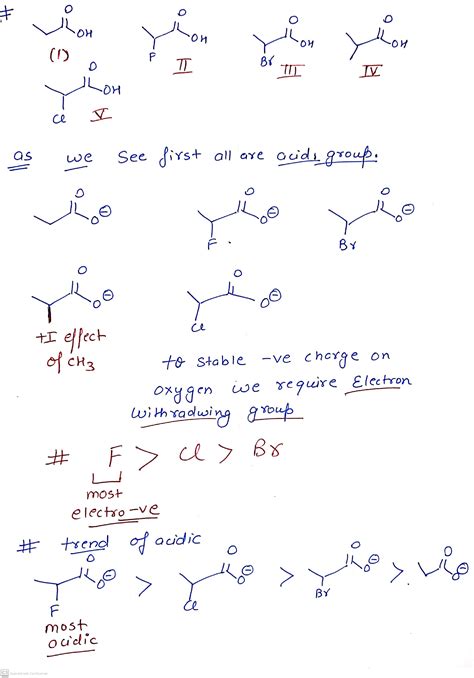 #
O OH (1)
O OH F II
O OH Br III
O OH IV
O OH Cl V
as we see first all are acids group.
O O⊖
O O⊖ F
O O⊖ Br
O O⊖
O O⊖ Cl
+I effect
of CH3
to stable -ve charge on
oxygen we require Electron
withradwing group
# F > Cl > Br
most
electro-ve
# trend of acidic
O O⊖ F > O O⊖ Cl > O O⊖ Br > O O⊖
most
acidic